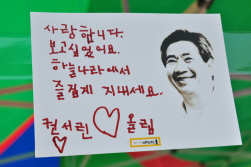 사랑합니다.
보고싶었어요.
하늘나라에서
즐겁게 지내세요..
올림